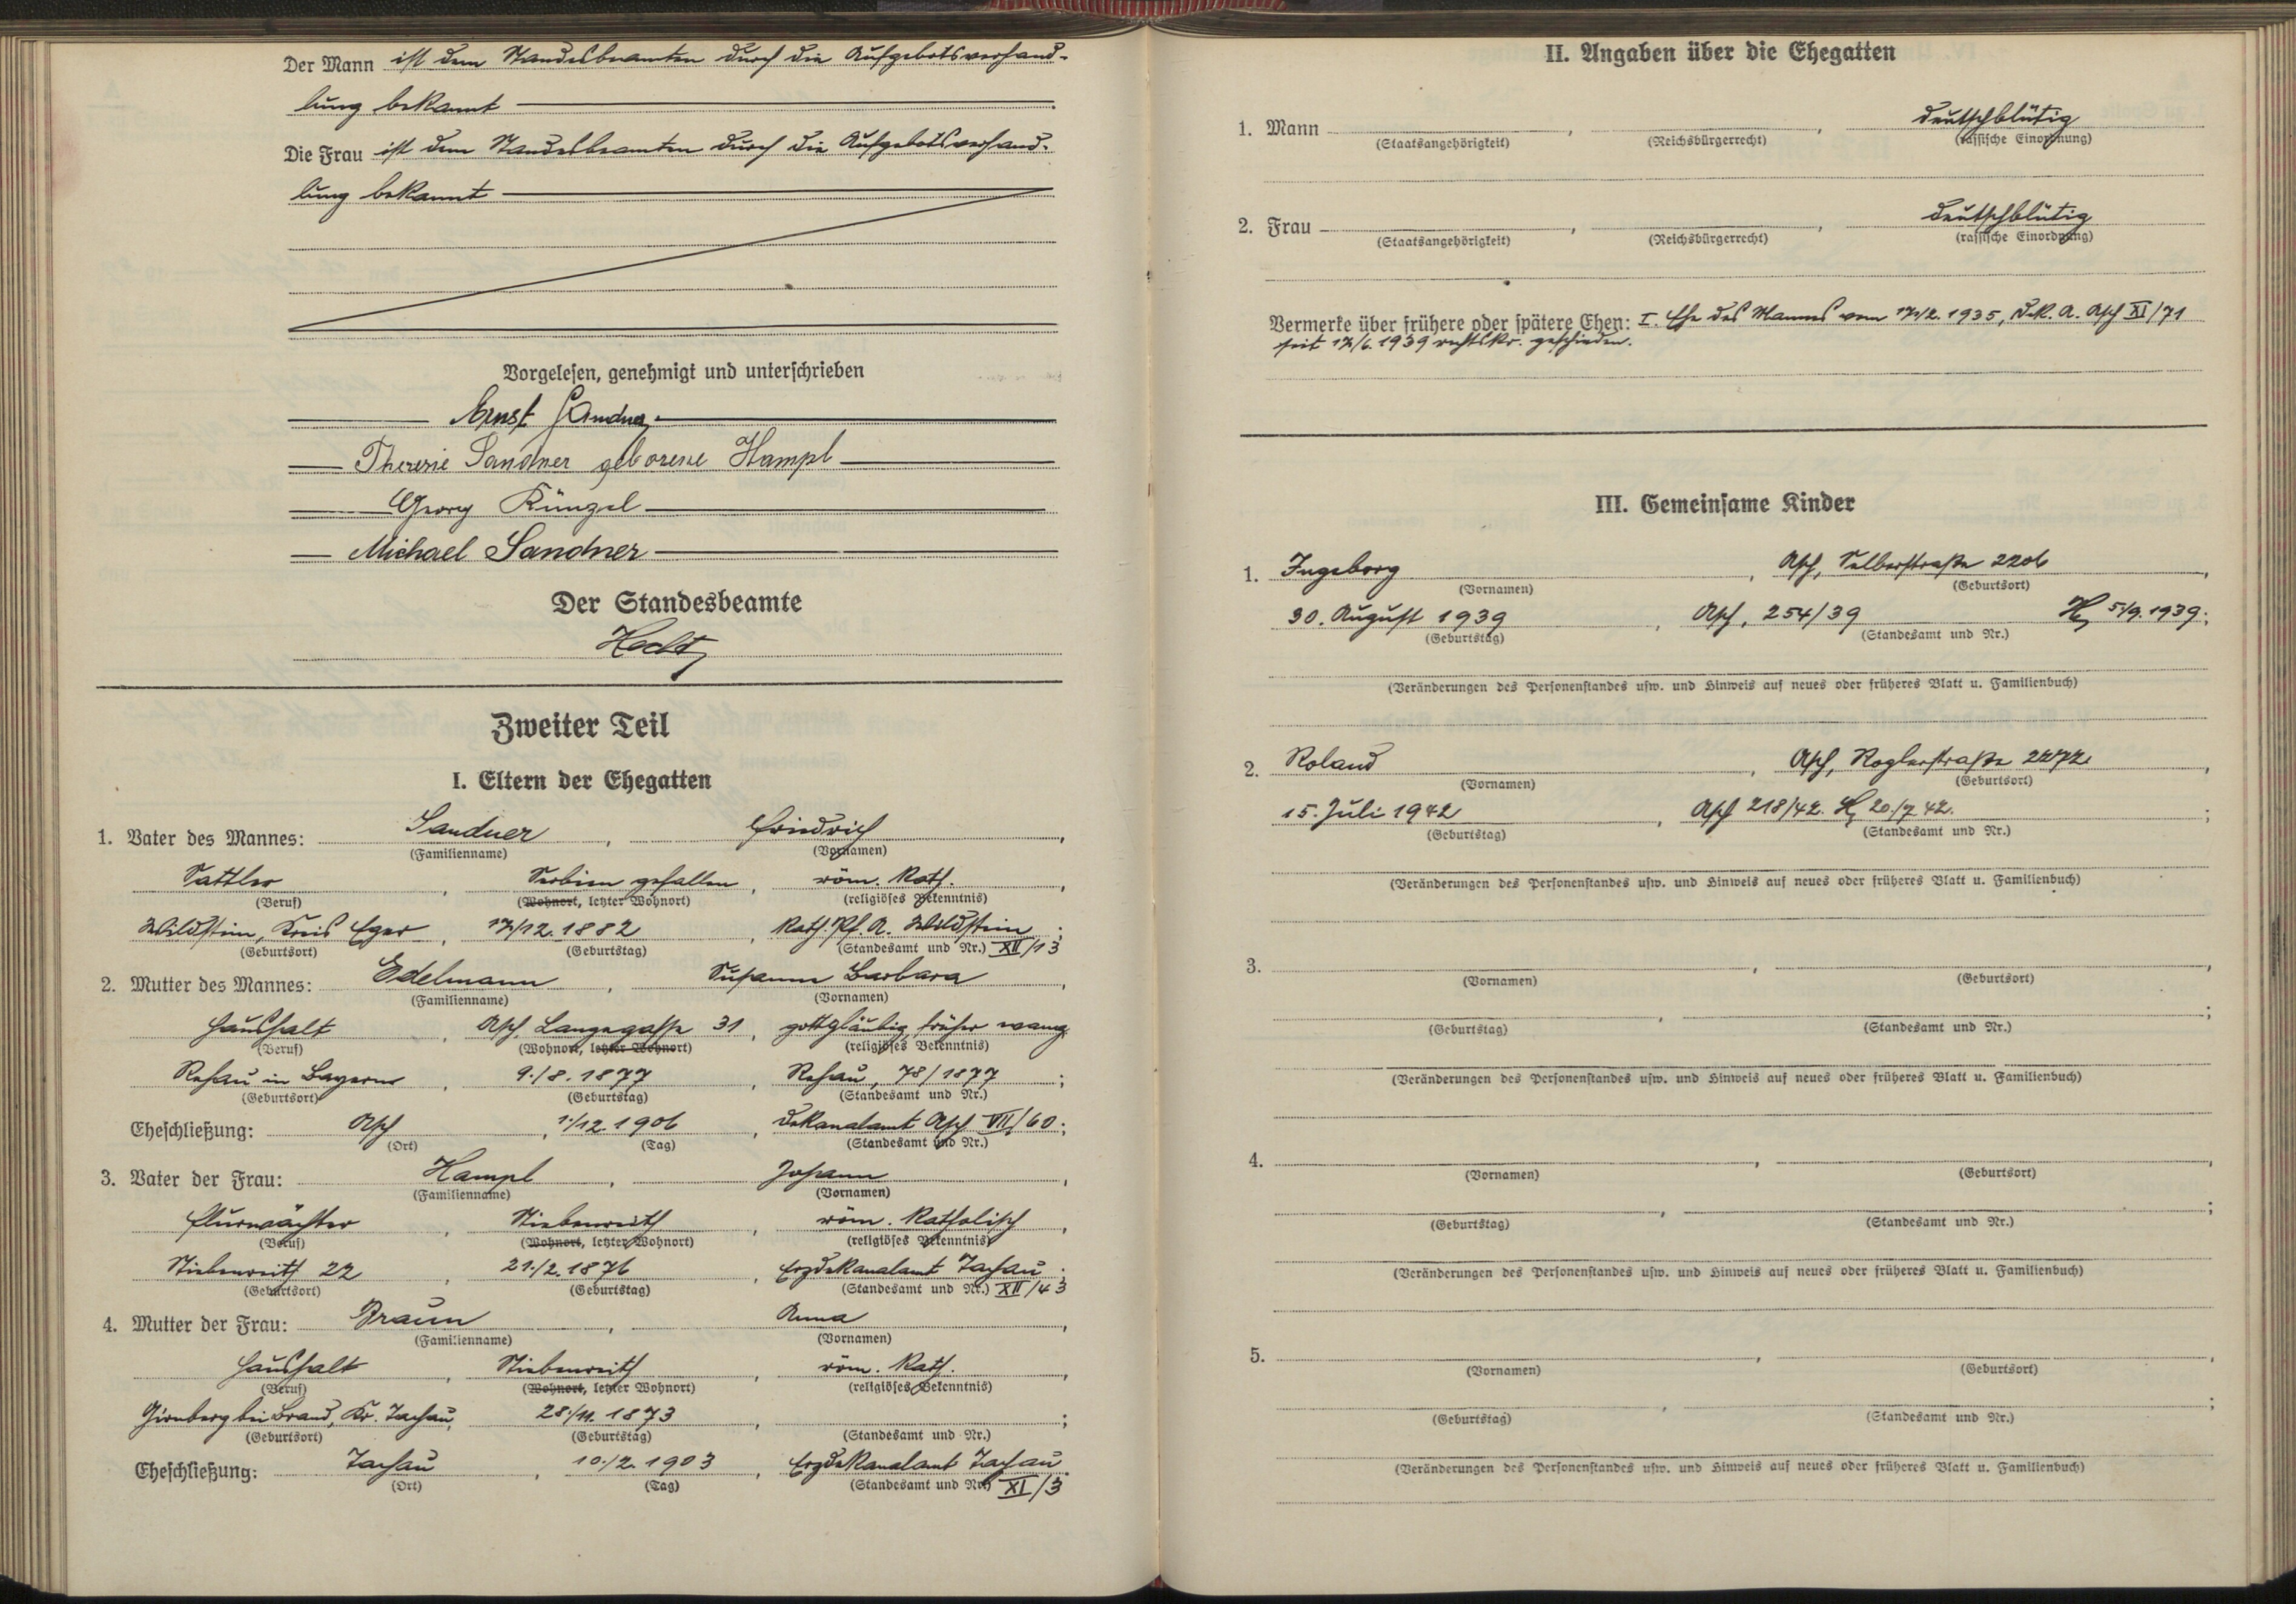 Der Mann ist dem Standesbeamten durch die Aufgebotsverhand-
lung bekannt
Die Frau ist dem Standesbeamten durch die Aufgebotsverhand-
lung bekannt
Vorgelesen, genehmigt und unterschrieben
Ernst Sandner
Theresie Sandner geborene Hampl
Georg Künzel
Michael Sandner
Der Standesbeamte
Hecht
Zweiter Teil
I. Eltern der Ehegatten
1. Vater des Mannes: Sandner, Friedrich
(Familienname) (Vornamen)
Sattler, Serbien gefallen, röm. kath.,
(Beruf) (Wohnort, letzter Wohnort) (religiöses Bekenntnis)
Wildstein, Kreis Eger, 17/12. 1882, Kath. Pf. A. Wildstein;
(Geburtsort) (Geburtstag) (Standesamt und Nr.) XII/13
2. Mutter des Mannes: Edelmann, Susanna Barbara,
(Familienname) (Vornamen)
Haushalt, Asch, Langegasse 31, gottgläubig, früher evang.
(Beruf) (Wohnort, letzter Wohnort) (religiöses Bekenntnis)
Rehau in Bayern, 9./8. 1877, Rehau, 78/1877;
(Geburtsort) (Geburtstag) (Standesamt und Nr.)
Eheschließung: Asch, 1./12. 1906, Dekanalamt Asch VII/60;
(Ort) (Tag) (Standesamt und Nr.)
3. Vater der Frau: Hampl, Johann,
(Familienname) (Vornamen)
Flurwächter, Stiebenreith, röm. katholisch,
(Beruf) (Wohnort, letzter Wohnort) (religiöses Bekenntnis)
Stiebenreith 22, 21./2. 1876, Erzdekanalamt Tachau;
(Geburtsort) (Geburtstag) (Standesamt und Nr.) XII/43
4. Mutter der Frau: Braun, Anna,
(Familienname) (Vornamen)
Haushalt, Stiebenreith, röm. kath.,
(Beruf) (Wohnort, letzter Wohnort) (religiöses Bekenntnis)
bei Brand, Kr. Tachau, 28./11. 1873, ;
(Geburtsort) (Geburtstag) (Standesamt und Nr.)
Eheschließung: Tachau, 10./2. 1903, Erzdekanalamt Tachau
(Ort) (Tag) (Standesamt und Nr.) XI/3
II. Angaben über die Ehegatten
1. Mann , , deutschblütig
(Staatsangehörigkeit) (Reichsbürgerrecht) (rassische Einordnung)
2. Frau , , deutschblütig
(Staatsangehörigkeit) (Reichsbürgerrecht) (rassische Einordnung)
Vermerke über frühere oder spätere Ehen: I. Ehe des Mannes vom 17./2. 1935, Dek. A. Asch XI/71
seit 17/6. 1939 rechtskr. geschieden.
III. Gemeinsame Kinder
1. Ingeborg, Asch, Selberstraße 2206,
(Vornamen) (Geburtsort)
30. August 1939, Asch, 254/39 5/9. 1939;
(Geburtstag) (Standesamt und Nr.)
(Veränderungen des Personenstandes usw. und Hinweis auf neues oder früheres Blatt u. Familienbuch)
2. Roland, Asch, Roglerstraße 2272,
(Vornamen) (Geburtsort)
15. Juli 1942, Asch 218/42. 20./7. 42. ;
(Geburtstag) (Standesamt und Nr.)
(Veränderungen des Personenstandes usw. und Hinweis auf neues oder früheres Blatt u. Familienbuch)
3. , ,
(Vornamen) (Geburtsort)
, ;
(Geburtstag) (Standesamt und Nr.)
(Veränderungen des Personenstandes usw. und Hinweis auf neues oder früheres Blatt u. Familienbuch)
4. , ,
(Vornamen) (Geburtsort)
, ;
(Geburtstag) (Standesamt und Nr.)
(Veränderungen des Personenstandes usw. und Hinweis auf neues oder früheres Blatt u. Familienbuch)
5. , ,
(Vornamen) (Geburtsort)
, ;
(Geburtstag) (Standesamt und Nr.)
(Veränderungen des Personenstandes usw. und Hinweis auf neues oder früheres Blatt u. Familienbuch)